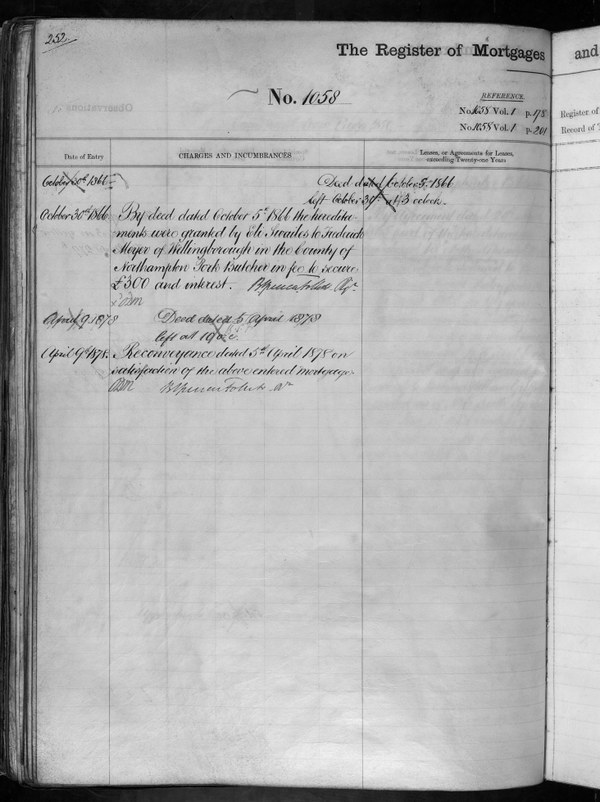 252
The Register of Mortgages
and
No. 1058
REFERENCE.
No. 1058 Vol. 1 p. 178
No. 1058 Vol. 1 p. 201
Register of
Record of
Date of Entry
CHARGES AND INCUMBRANCES
Leases, or Agreements for Leases,
exceeding Twenty-one Years
October 30th 1866
Deed dated October 5, 1866
left October 30th at 3 oclock
October 30th 1866 By deed dated October 5th 1866 the heredita-
ments were granted by Eli Swailes to Fredrick
Meyer of Wellingborough in the County of
Northampton Pork Butcher in fee to secure
£300 and interest.
April 9 1878 Deed dated 5 April 1878
left at 10 o.c.
April 9th 1878. Reconveyance dated 5th April 1878 on
satisfaction of the above entered mortgage